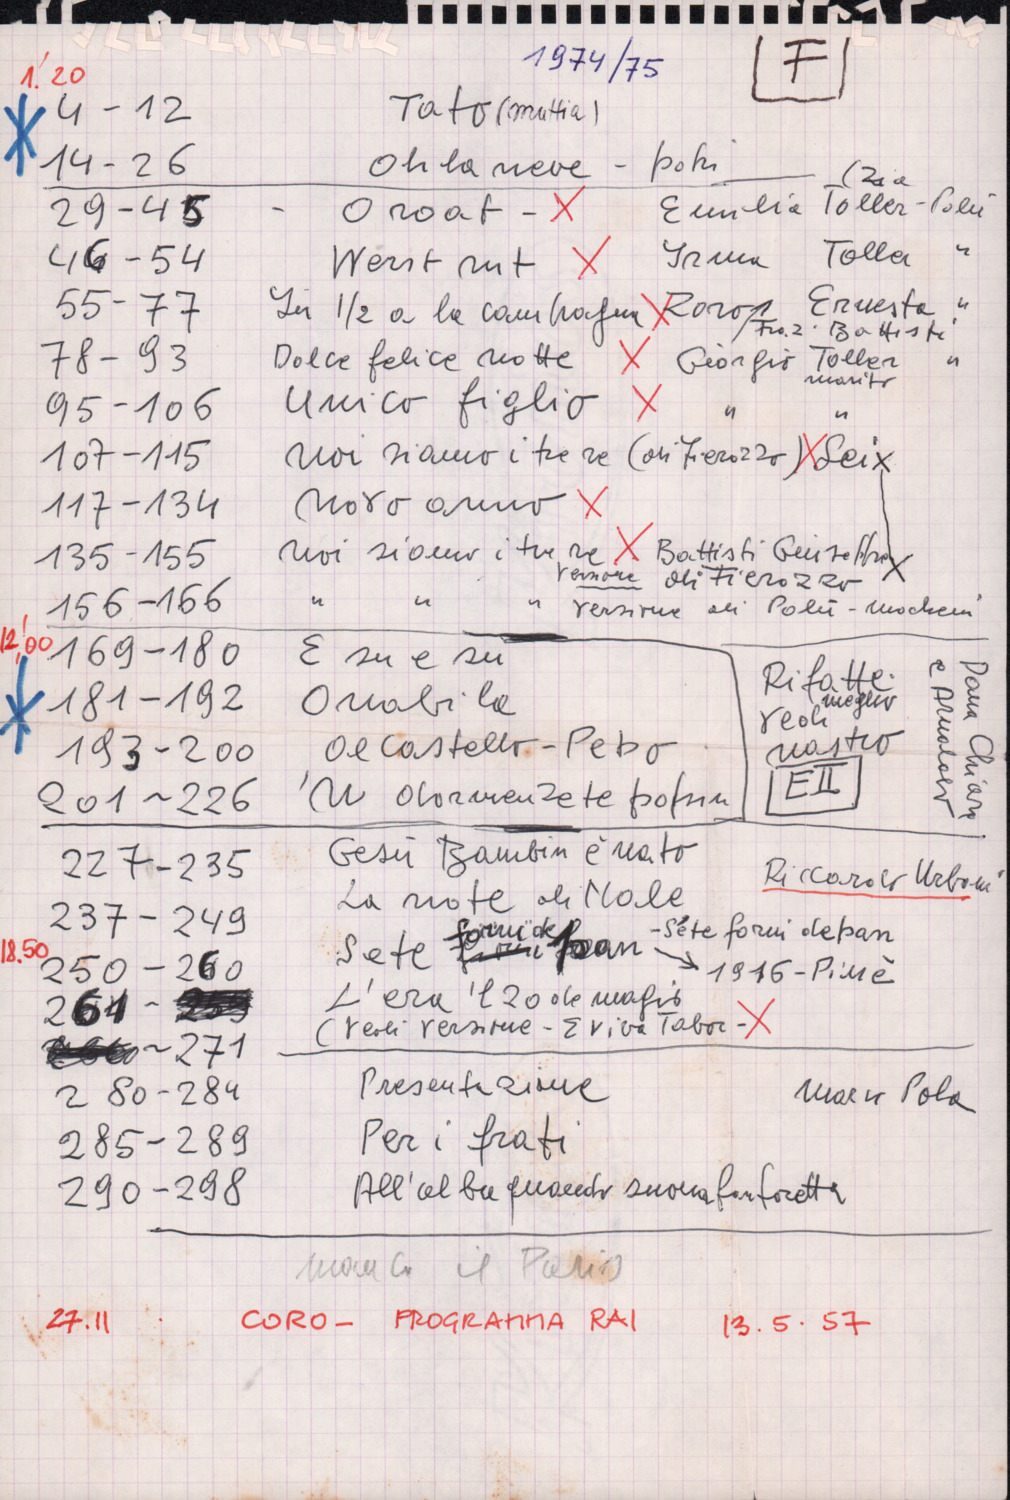 1974/75
F
1.'20
4 - 12 Tato (mattia)
14 - 26 Oh la neve - popi
29 - 45 - Oroat - X Emilia Toller - Palù (Zia
46 - 54 Werst mt X Irma Toller "
55 - 77 In 1/2 a la campagna X Ernesta "
Fraz. Battisti
78 - 93 Dolce felice notte X Giorgio Toller "
marito
95 - 106 Unico figlio X " "
107 - 115 Noi siamo i tre re (di Fierozzo) X Lei x
117 - 134 Novo anno X
135 - 155 noi siamo i tre re X Battisti Giuseppe x
versione di Fierozzo
156 - 166 " " " versione di Palù - mocheni
12,'00
169 - 180 E su e su
181 - 192 O nobila
193 - 200 Al Castello - Pebo
201 ~ 226 'N dormenzete popin
Rifatte.
meglio
vedi
nastro
EII
Dona Chiara
e Armatore
227 - 235 Gesù Bambin è nato
237 - 249 La note di Nole
Riccardo Urbani
18.50
250 - 260 Sete forni de pan - Sète forni de pan
→ 1916 - Pinè
261 - L'era 'l 20 de magio
(vedi versione - E viva Tabor - X
~ 271
280 - 284 Presentazione Marco Pola
285 - 289 Per i frati
290 - 298 All'alba quando suona fanfaretta
manca il Paris
27.11 CORO - PROGRAMMA RAI 13.5.57